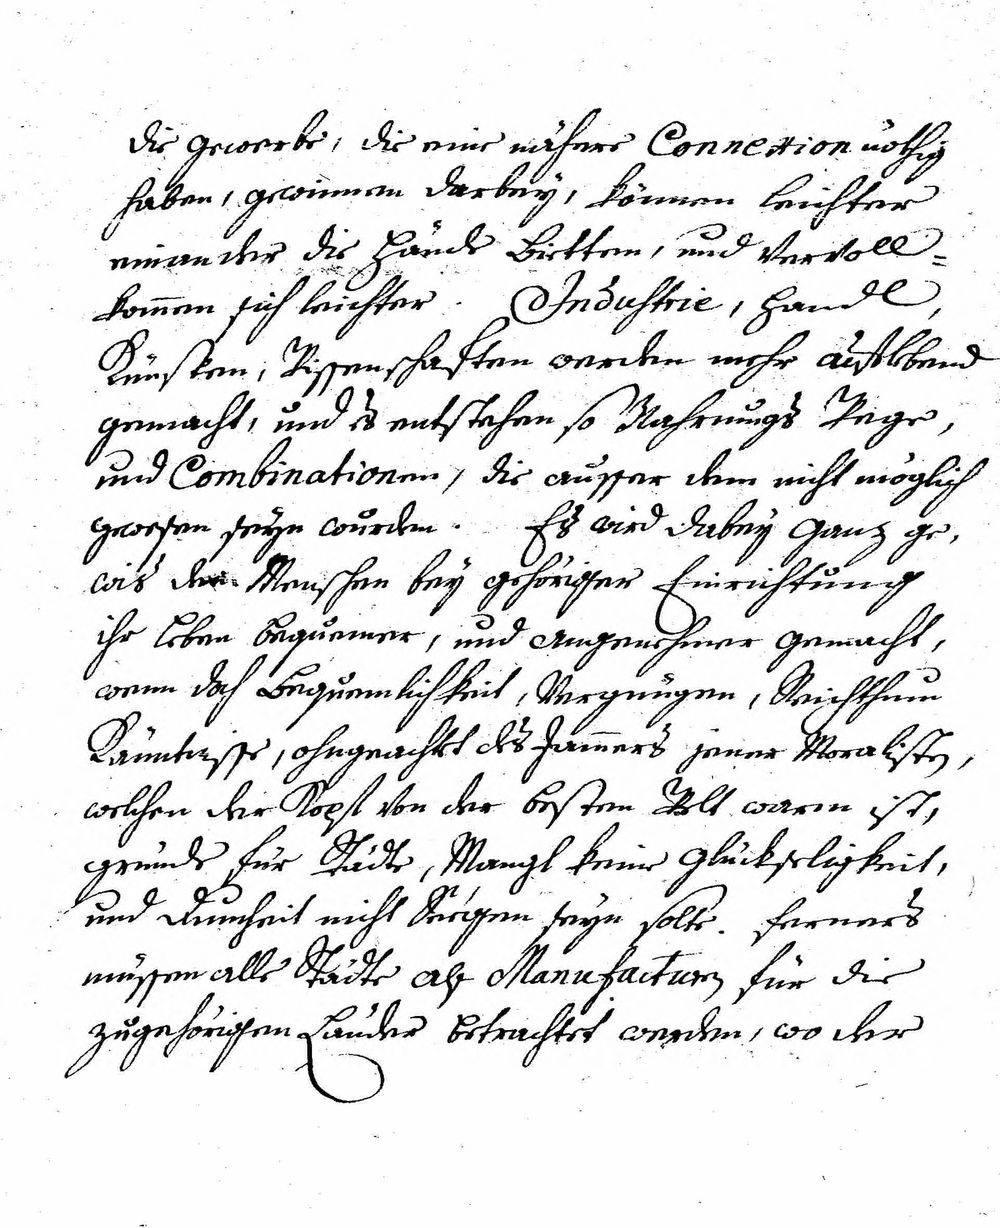 die gewerbe, die eine nähere Connextion nöthig
haben, gewinnen darbey, können leichter
einander die Hände bietten, und vervoll=
kom̅en sich leichter. Industrie, Handl,
Künsten, Wissenschaften werden mehr auflebend
gemacht, und es entstehen so Nahrungs Wege,
und Combinationen, die ausser dem nicht möglich
gewesen seyn wurden. Es wird dabey ganz ge,
wis den Menschen bey gehöriger Einrichtung
ihr leben bequemer, und angenehmer gemacht,
wenn doch bequemlichkeit, Vergnügen, Reichthum
Känntnisse, ohngeachtet des Jam̅ers jener Moralisten,
welchen der Kopf von der besten Welt warm ist,
gründe für Städte, Mangl keine glückseligkeit,
und Dumheit nicht Seegen seyn solte. ferners
müssen alle Städte als Manufacturen für die
zugehörigen Länder betrachtet werden, wo der